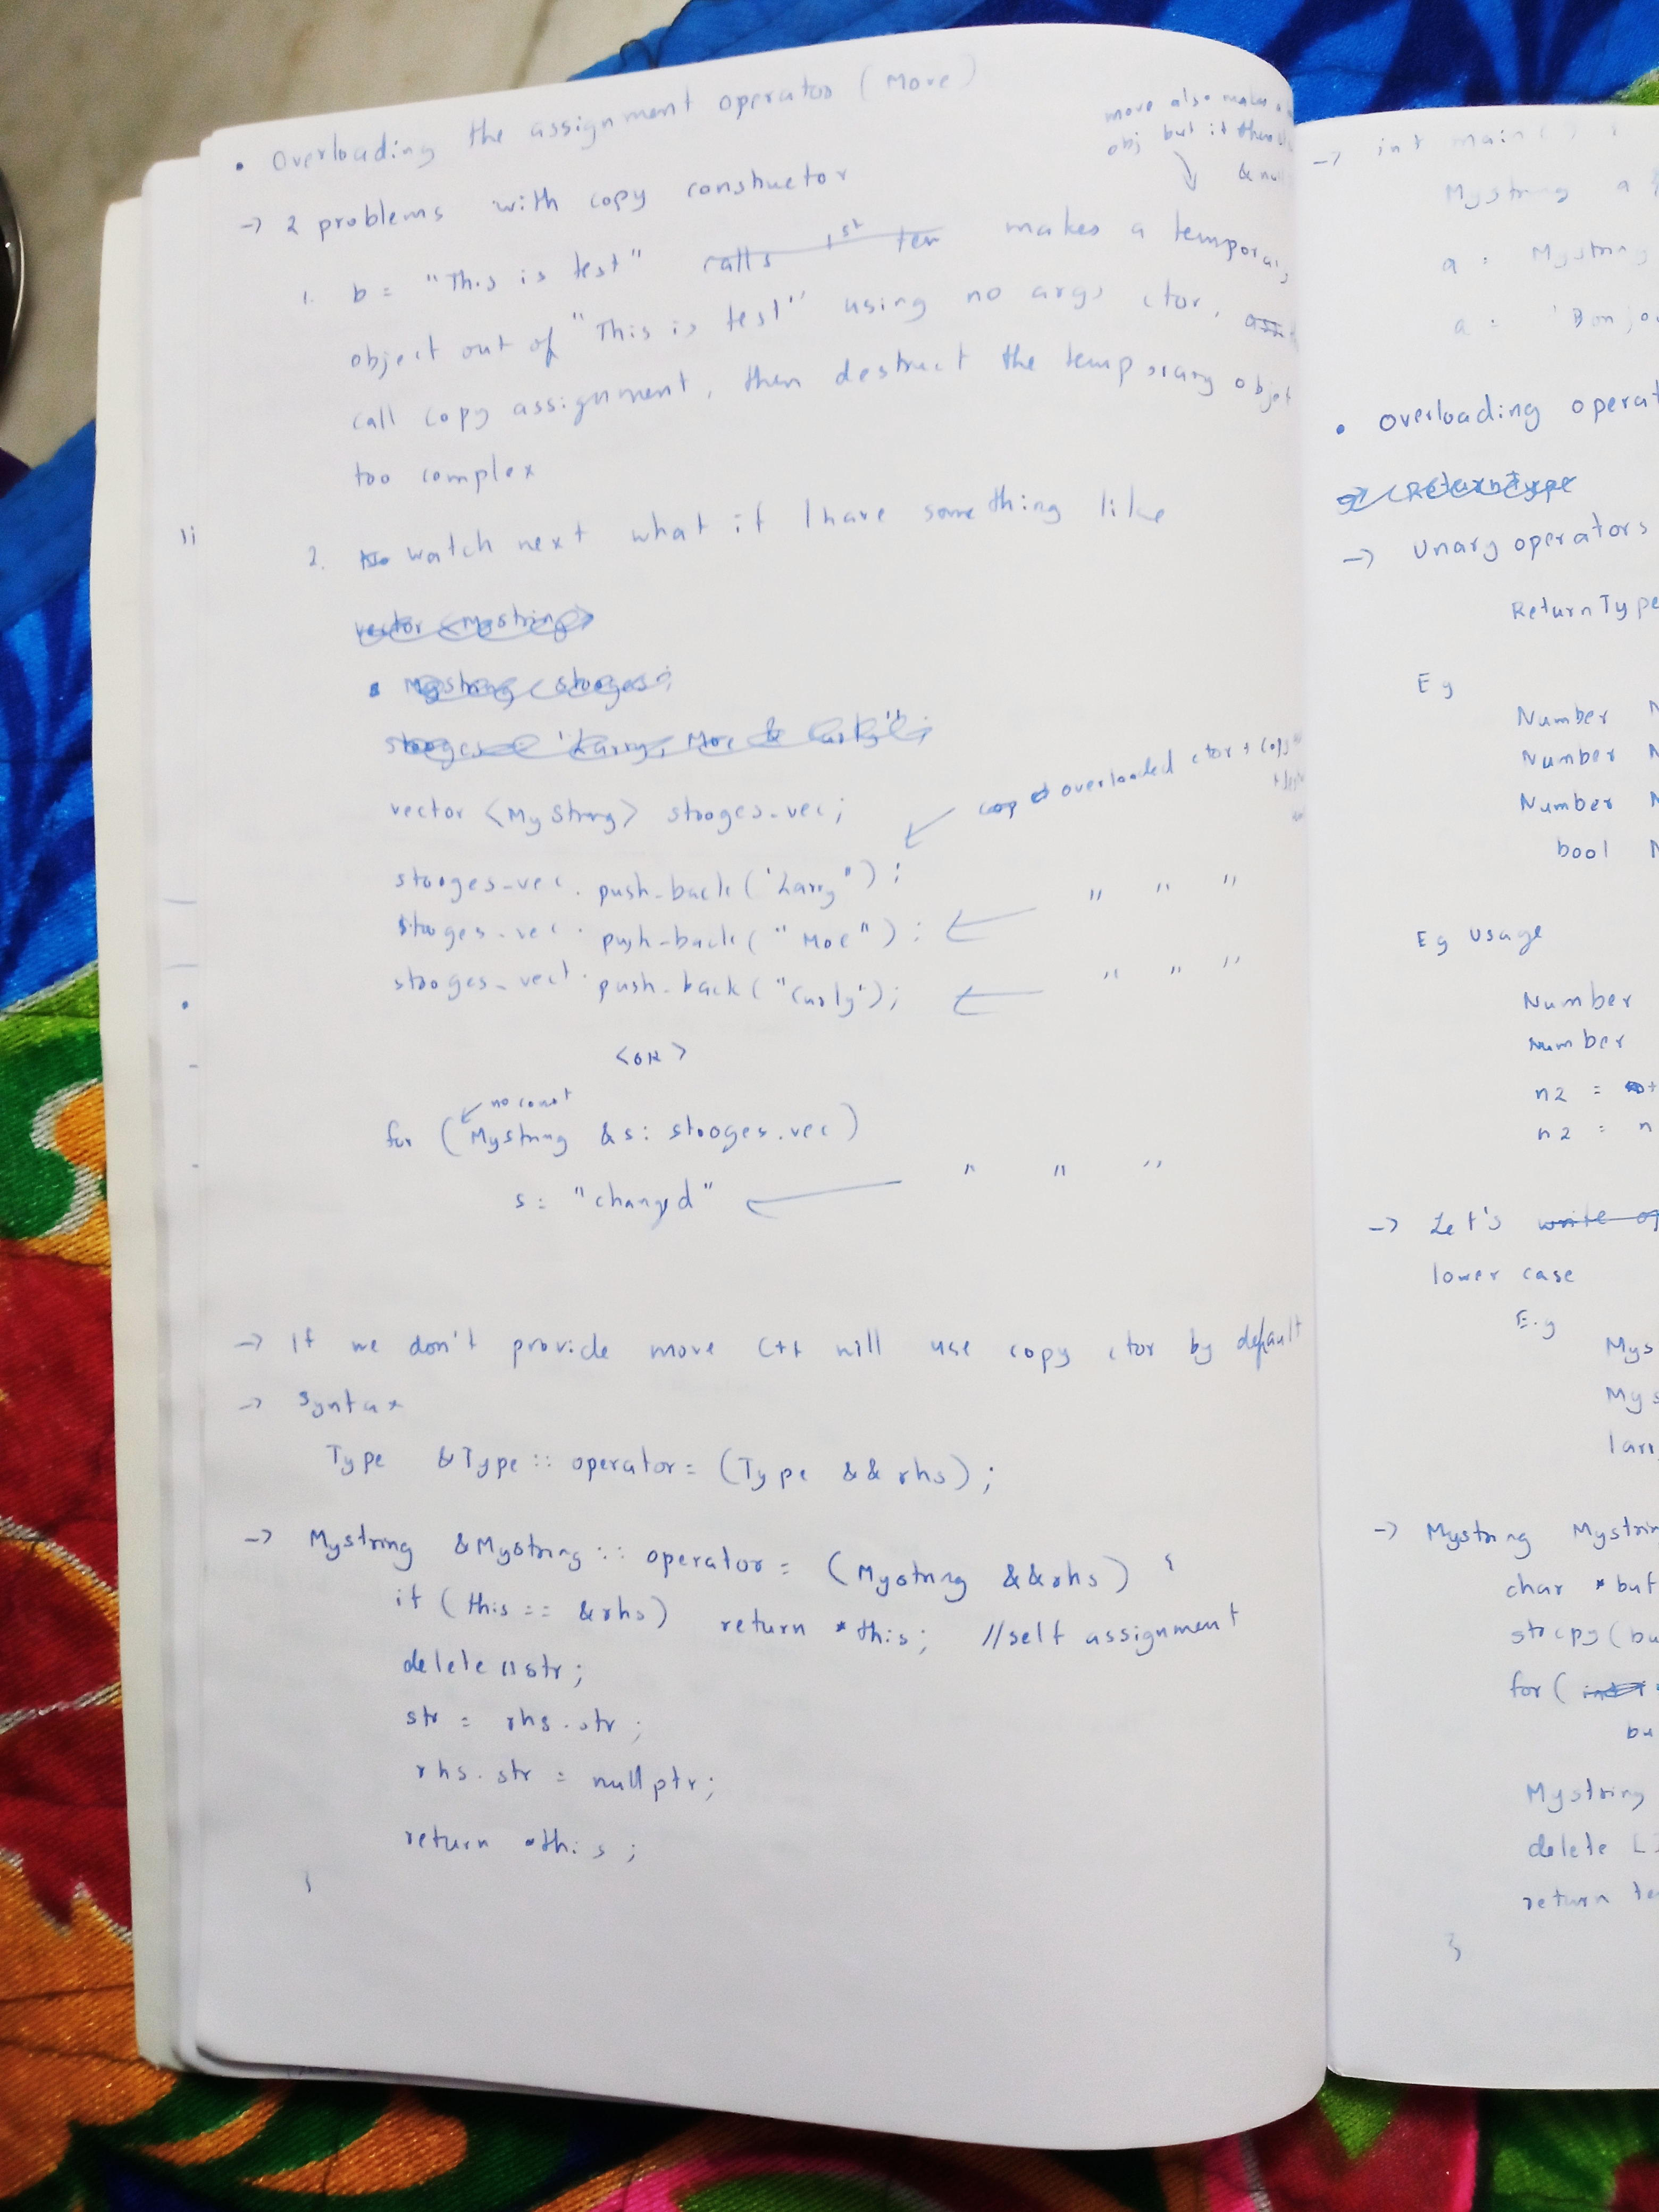 • Overloading the assignment operator (Move)
move also makes a
obj but it then
& nul
-> 2 problems with copy constructor
1. b = "This is test" calls 1st makes a temporary
object out of "This is test" using no args ctor,
call copy assignment, then destruct the temporary object
too complex
2. watch next what if I have something like
vector <Mystring>
Mystring stooges;
stooges = "Larry, Moe & Curly";
vector <MyString> stooges_vec;
overloaded ctor + copy
stooges_vec. push_back("Larry");
" " "
stooges_vec. push_back("Moe");
" " "
stooges_vect. push_back("Curly");
<OR>
no const
for (MyString &s: stooges.vec)
s = "changed"
" " "
-> If we don't provide move C++ will use copy ctor by default
-> Syntax
Type &Type:: operator= (Type && rhs);
-> Mystring &Mystring:: operator= (Mystring &&rhs) {
if (this == &rhs) return *this; //self assignment
delete [] str;
str = rhs.str;
rhs.str = nullptr;
return *this;
}
-> int main() {
Mystring a
a = Mystring
a =
• Overloading operat
-> ReturnType
-> Unary operators
ReturnType
Eg
Number N
Number N
Number N
bool N
Eg usage
Number
Number
n2 =
n2 = n
-> Let's write
lower case
E.g
Mys
Mys
larr
-> Mystring Mystrin
char *buf
strcpy(bu
for (
bu
Mystring
delete []
return te
}